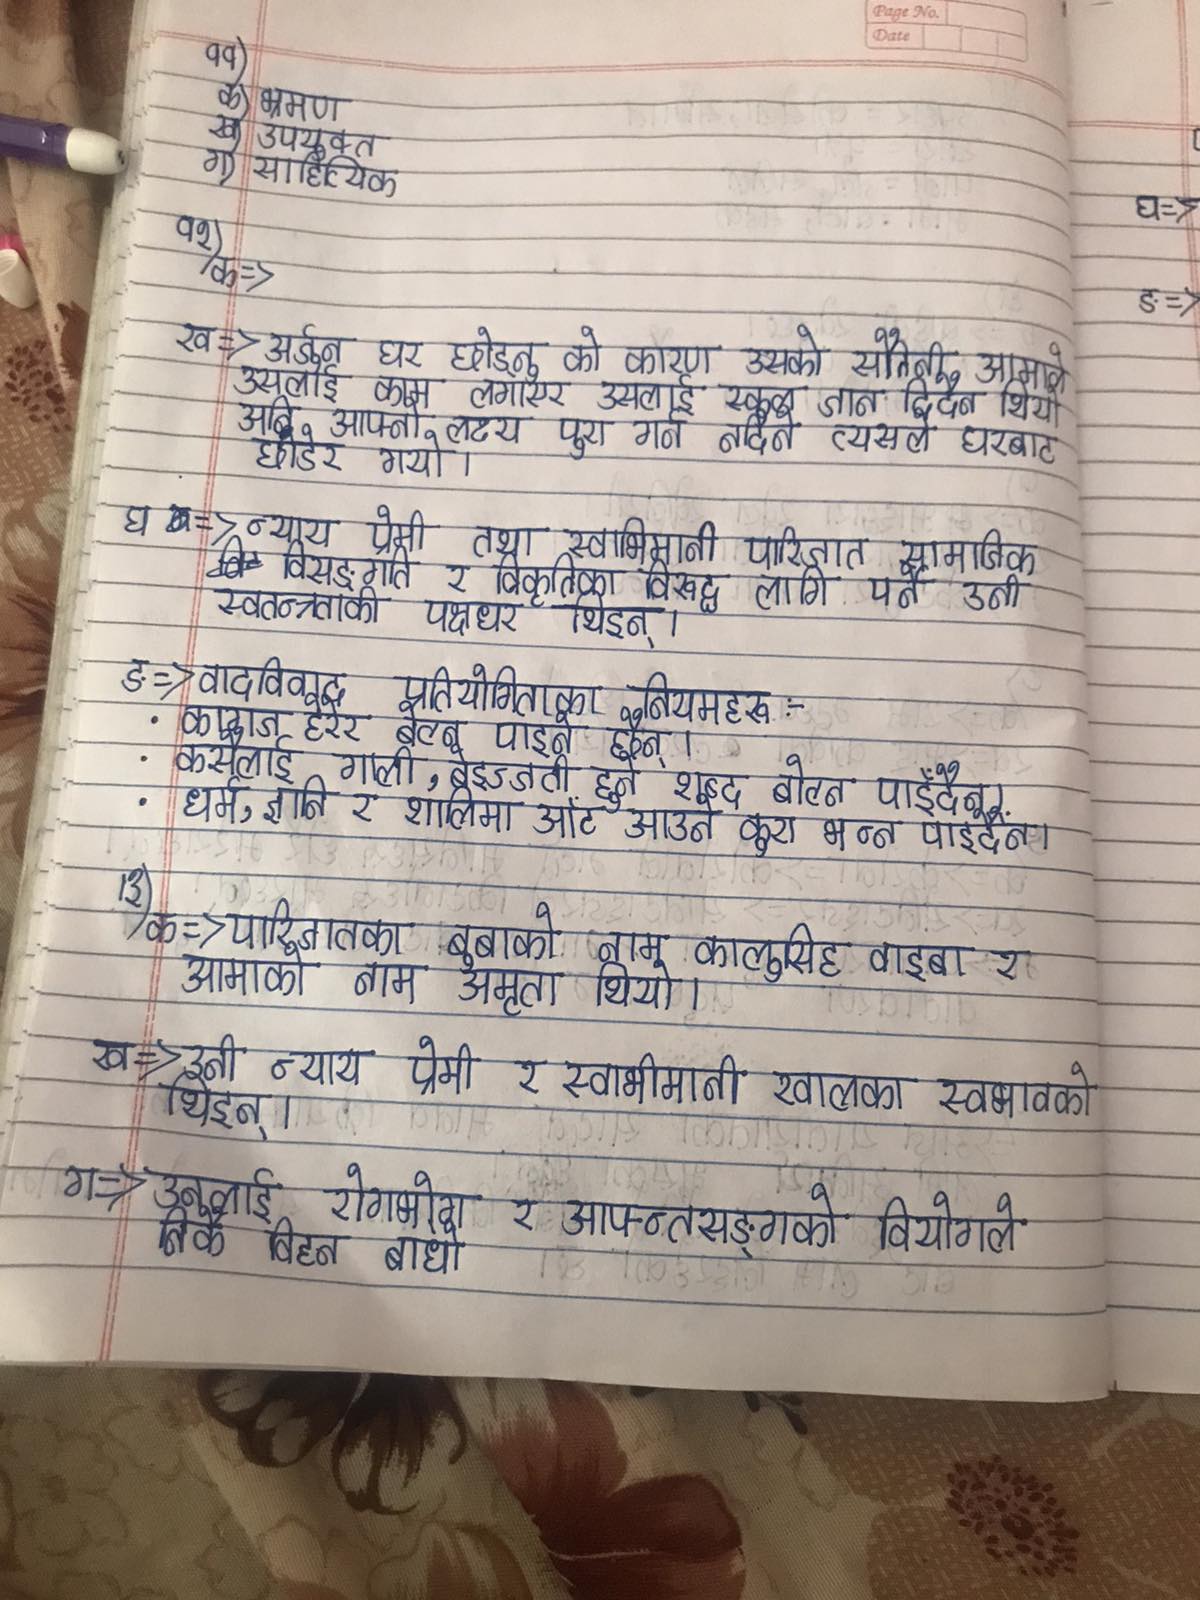 Page No.
Date
११)
क) भ्रमण
ख) उपयुक्त
ग) साहित्यिक
१२)
क=>
ख=> अर्जुन घर छोड्नु को कारण उसको सौतिनी आमाले
उसलाई काम लगाएर उसलाई स्कुल जान दिदैन थियो
अनि आफ्नो लक्ष्य पुरा गर्न नदिने त्यसले घरबाट
छोडेर गयो।
घ => न्याय प्रेमी तथा स्वाभिमानी पारिजात सामाजिक
विसङ्गति र विकृतिका विरुद्ध लागि पर्ने उनी
स्वतन्त्रताकी पक्षधर थिइन्।
ङ=> वादविवाद प्रतियोगिताका नियमहरू :-
· कागज हेरेर बोल्न पाइने छैन्।
· कसैलाई गाली, बेइज्जती हुने शब्द बोल्न पाइँदैन।
· धर्म, ज्ञानि र शालिमा आँट आउने कुरा भन्न पाइदैन।
१३)
क=> पारिजातका बुबाको नाम कालुसिह वाइबा र
आमाको नाम अमृता थियो।
ख=> उनी न्याय प्रेमी र स्वाभीमानी खालका स्वभावको
थिइन्।
ग=> उनलाई रोगभोग र आफन्तसङ्गको वियोगले
निकै विहन बाधो
घ=>
ङ=>